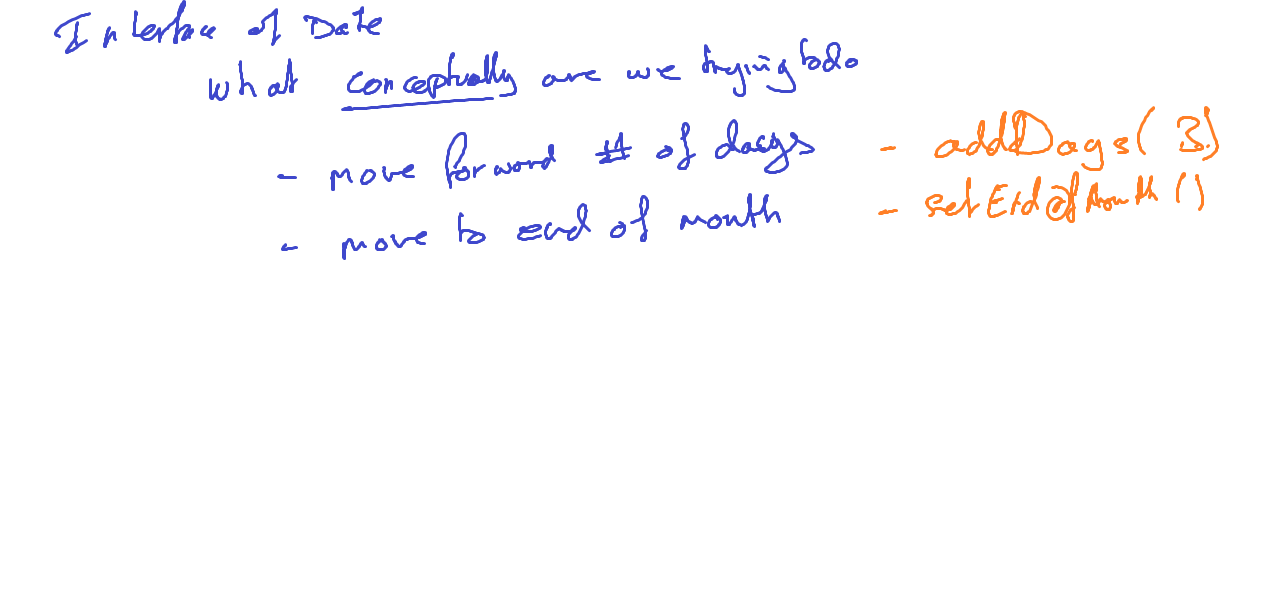 Interface of Date
what conceptually are we trying to do
- move forward # of days - addDays(3)
- move to end of month - setEndOfMonth()